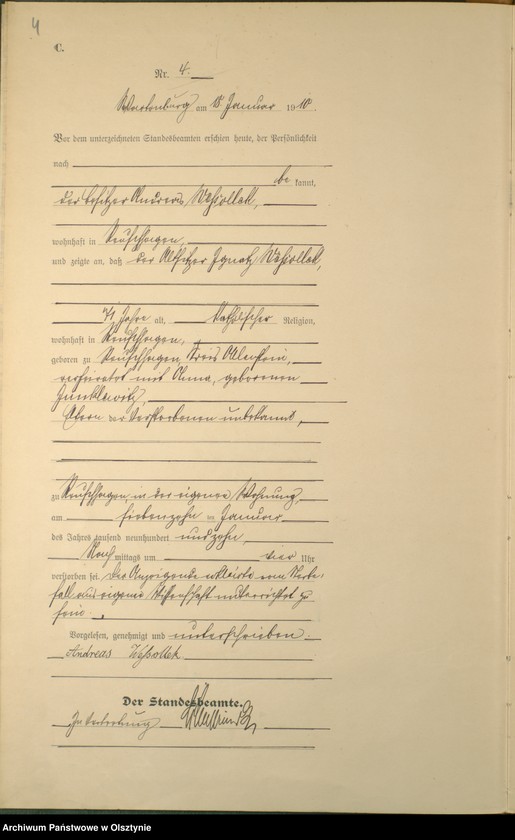 4
C.
Nr. 4.
Wartenburg am 18. Januar 1910.
Vor dem unterzeichneten Standesbeamten erschien heute, der Persönlichkeit
nach
be kannt,
der Besitzer Andreas
wohnhaft in
und zeigte an, daß der Altsitzer Ignatz
71 Jahre alt, katholischer Religion,
wohnhaft in
geboren zu Kreis Allenstein,
verheiratet mit Anna, geborenen
Eltern der Verstorbenen unbekannt,
zu in der eigenen Wohnung,
am siebenzehn ten Januar
des Jahres tausend neunhundert und zehn,
Nach mittags um vier Uhr
verstorben sei. Der Anzeigende erklärte vom Sterbe-
fall aus eigener Wissenschaft unterrichtet zu
sein.
Vorgelesen, genehmigt und unterschrieben.
Andreas
Der Standesbeamte.
In Vertretung
Archiwum Państwowe w Olsztynie